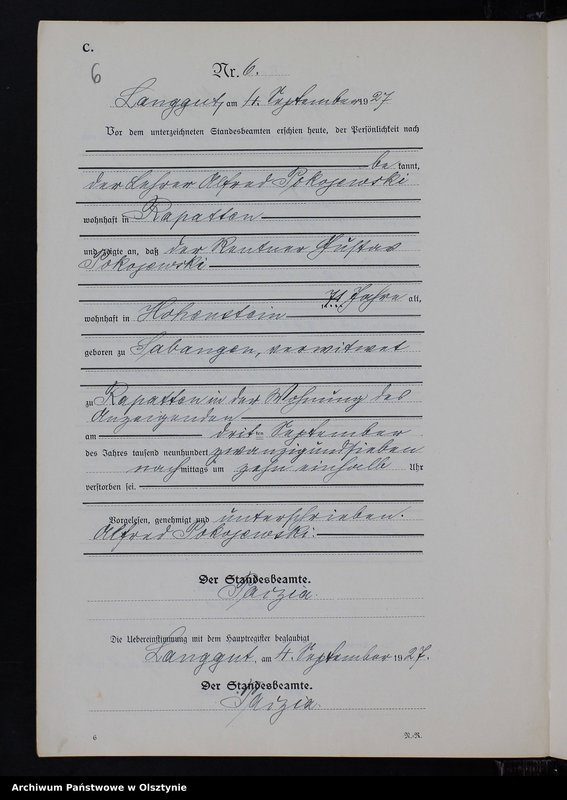 C.
6
Nr. 6.
Langgut, am 4. September 1927
Vor dem unterzeichneten Standesbeamten erschien heute, der Persönlichkeit nach
be kannt,
der Lehrer Alfred Pokojewski
wohnhaft in Rapatten
und zeigte an, daß der Rentner Gustav
Pokojewski
71 Jahre alt,
wohnhaft in Hohenstein
geboren zu Sabangen, verwitwet
zu Rapatten in der Wohnung des
Anzeigenden
am dritten September
des Jahres tausend neunhundert zwanzigundsieben
nachmittags um zehn einhalb Uhr
verstorben sei.
Vorgelesen, genehmigt und unterschrieben.
Alfred Pokojewski.
Der Standesbeamte.
Die Uebereinstimmung mit dem Hauptregister beglaubigt
Langgut, am 4. September 1927.
Der Standesbeamte.
6
N.-R.
Archiwum Państwowe w Olsztynie